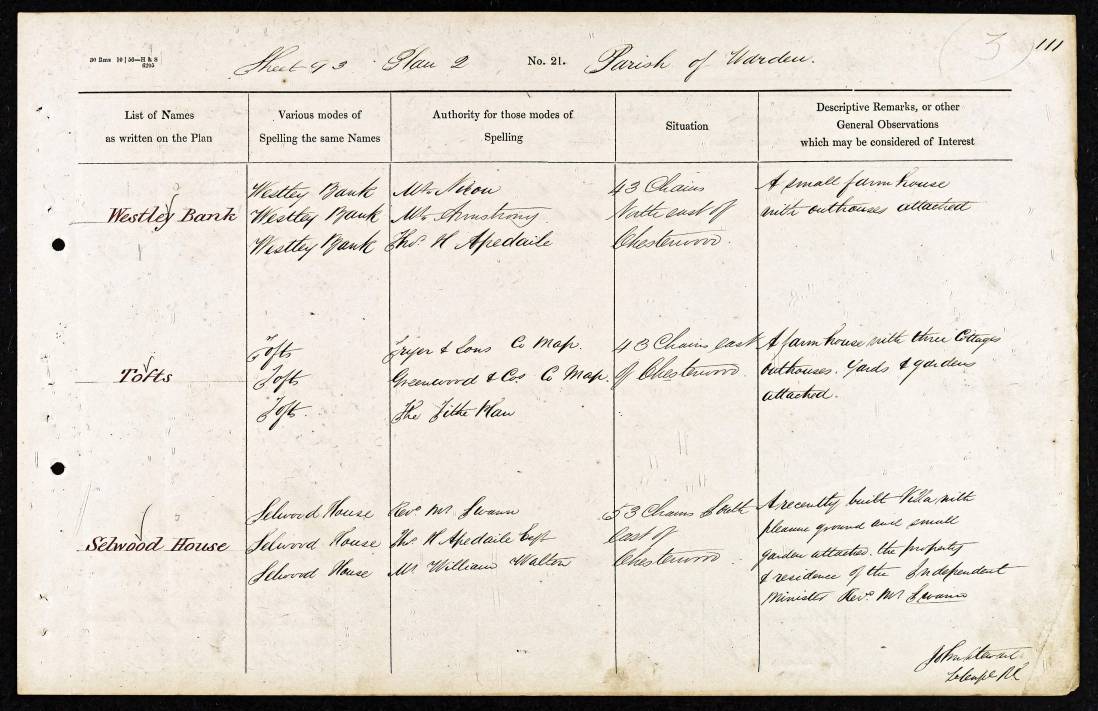 3 111
30 Bms 10 | 56—H & S
6205
Sheet 93 Plan 2 No. 21. Parish of Warden.
List of Names
as written on the Plan
Various modes of
Spelling the same Names
Authority for those modes of
Spelling
Situation
Descriptive Remarks, or other
General Observations
which may be considered of Interest
Westley Bank
Westley Bank
Westley Bank
Westley Bank
Mr. Nixon
Mr. Armstrong
Thos. H Apedaile
43 Chains
North east of
Chesterwood.
A small farm house
with outhouses attached
Tofts
Tofts
Tofts
Toft.
Fryer & Sons Co Map.
Greenwood & Cos Co Map.
The Tithe Plan
43 Chains east
of Chesterwood.
A farm house with three Cottages
outhouses. Yards & gardens
attached.
Selwood House
Selwood House
Selwood House
Selwood House
Revd. Mr. Swann
Thos H Apedaile Esqr
Mr William Walton
53 Chains South
East of
Chesterwood.
A recently built Villa with
pleasure ground and small
garden attached. the property
& residence of the Independent
Minister Revd. Mr Swann
John Stewart
RE